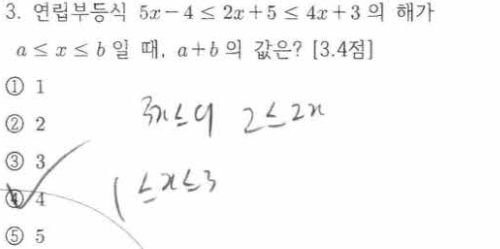 3. 연립부등식 5x-4≤2x+5≤4x+3 의 해가
a≤x≤b 일 때, a+b 의 값은? [3.4점]
① 1
② 2
③ 3
④ 4
⑤ 5
3x≤9 2≤2x
1≤x≤3